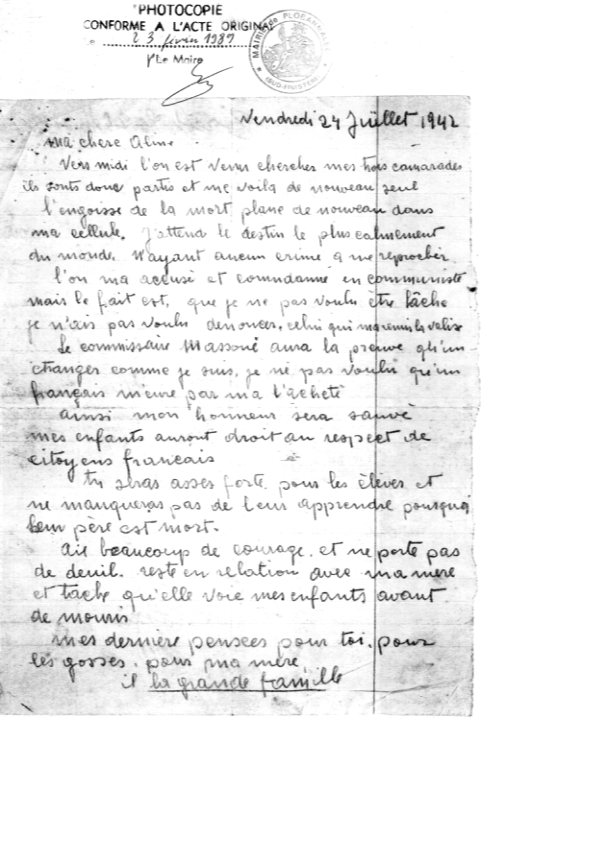 PHOTOCOPIE
CONFORME A L'ACTE ORIGINAL
23 février 1989
Le Maire
MAIRIE de PLOBANNALEC
(SUD-FINISTERE)
Vendredi 24 Juillet 1942
ma chere Aline
Vers midi l'on est venu chercher mes trois camarades
ils sonts donc partis et me voila de nouveau seul
l'engoisse de la mort plane de nouveau dans
ma cellule. J'attend le destin le plus calmement
du monde. N'ayant aucun crime a me reprocher
l'on ma accusé et comndanné en communiste
mais le fait est, que je ne pas voulu etre lâche
je n'ais pas voulu denoncer, celui qui ma remis la valise
Le commissaire Massoué aura la preuve qu'un
etranger comme je suis, je ne pas voulu qu'un
français meure par ma l'acheté
ainsi mon honneur sera sauvé
mes enfants auront droit au respect de
citoyens francais
tu seras asses forte pour les èlever et
ne manqueras pas de leur apprendre pourquoi
leur père est mort.
Aie beaucoup de courage. et ne porte pas
de deuil. reste en relation avec ma mère
et tache qu'elle voie mes enfants avant
de mourir
mes dernière pensées pour toi. pour
les gosses. pour ma mère
la grande famille